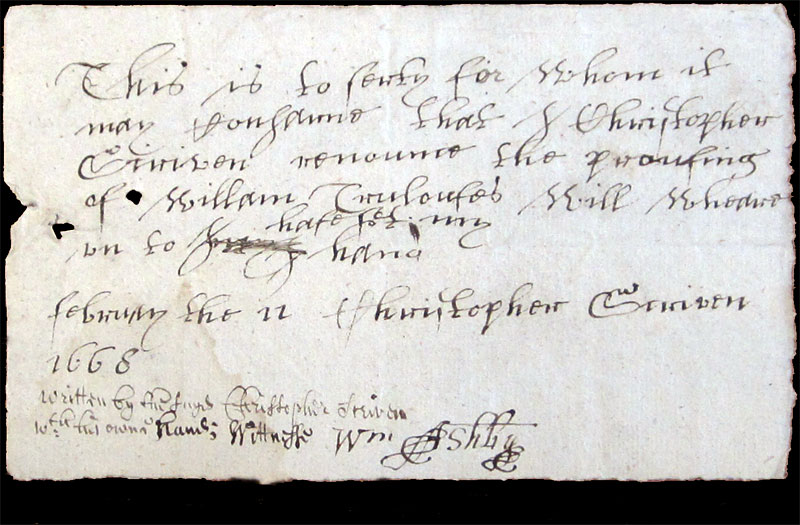 This is to serty for Whom it
may Consarne that I Christopher
Scriven renounce the proufing
of Willam Truloufes Will Wheare
hafe set my
vn to I hand
februay the 11 Christopher Scriven
1668
written by Christopher Scriven
wth his owne hand; Wittnesse Wm Ashby